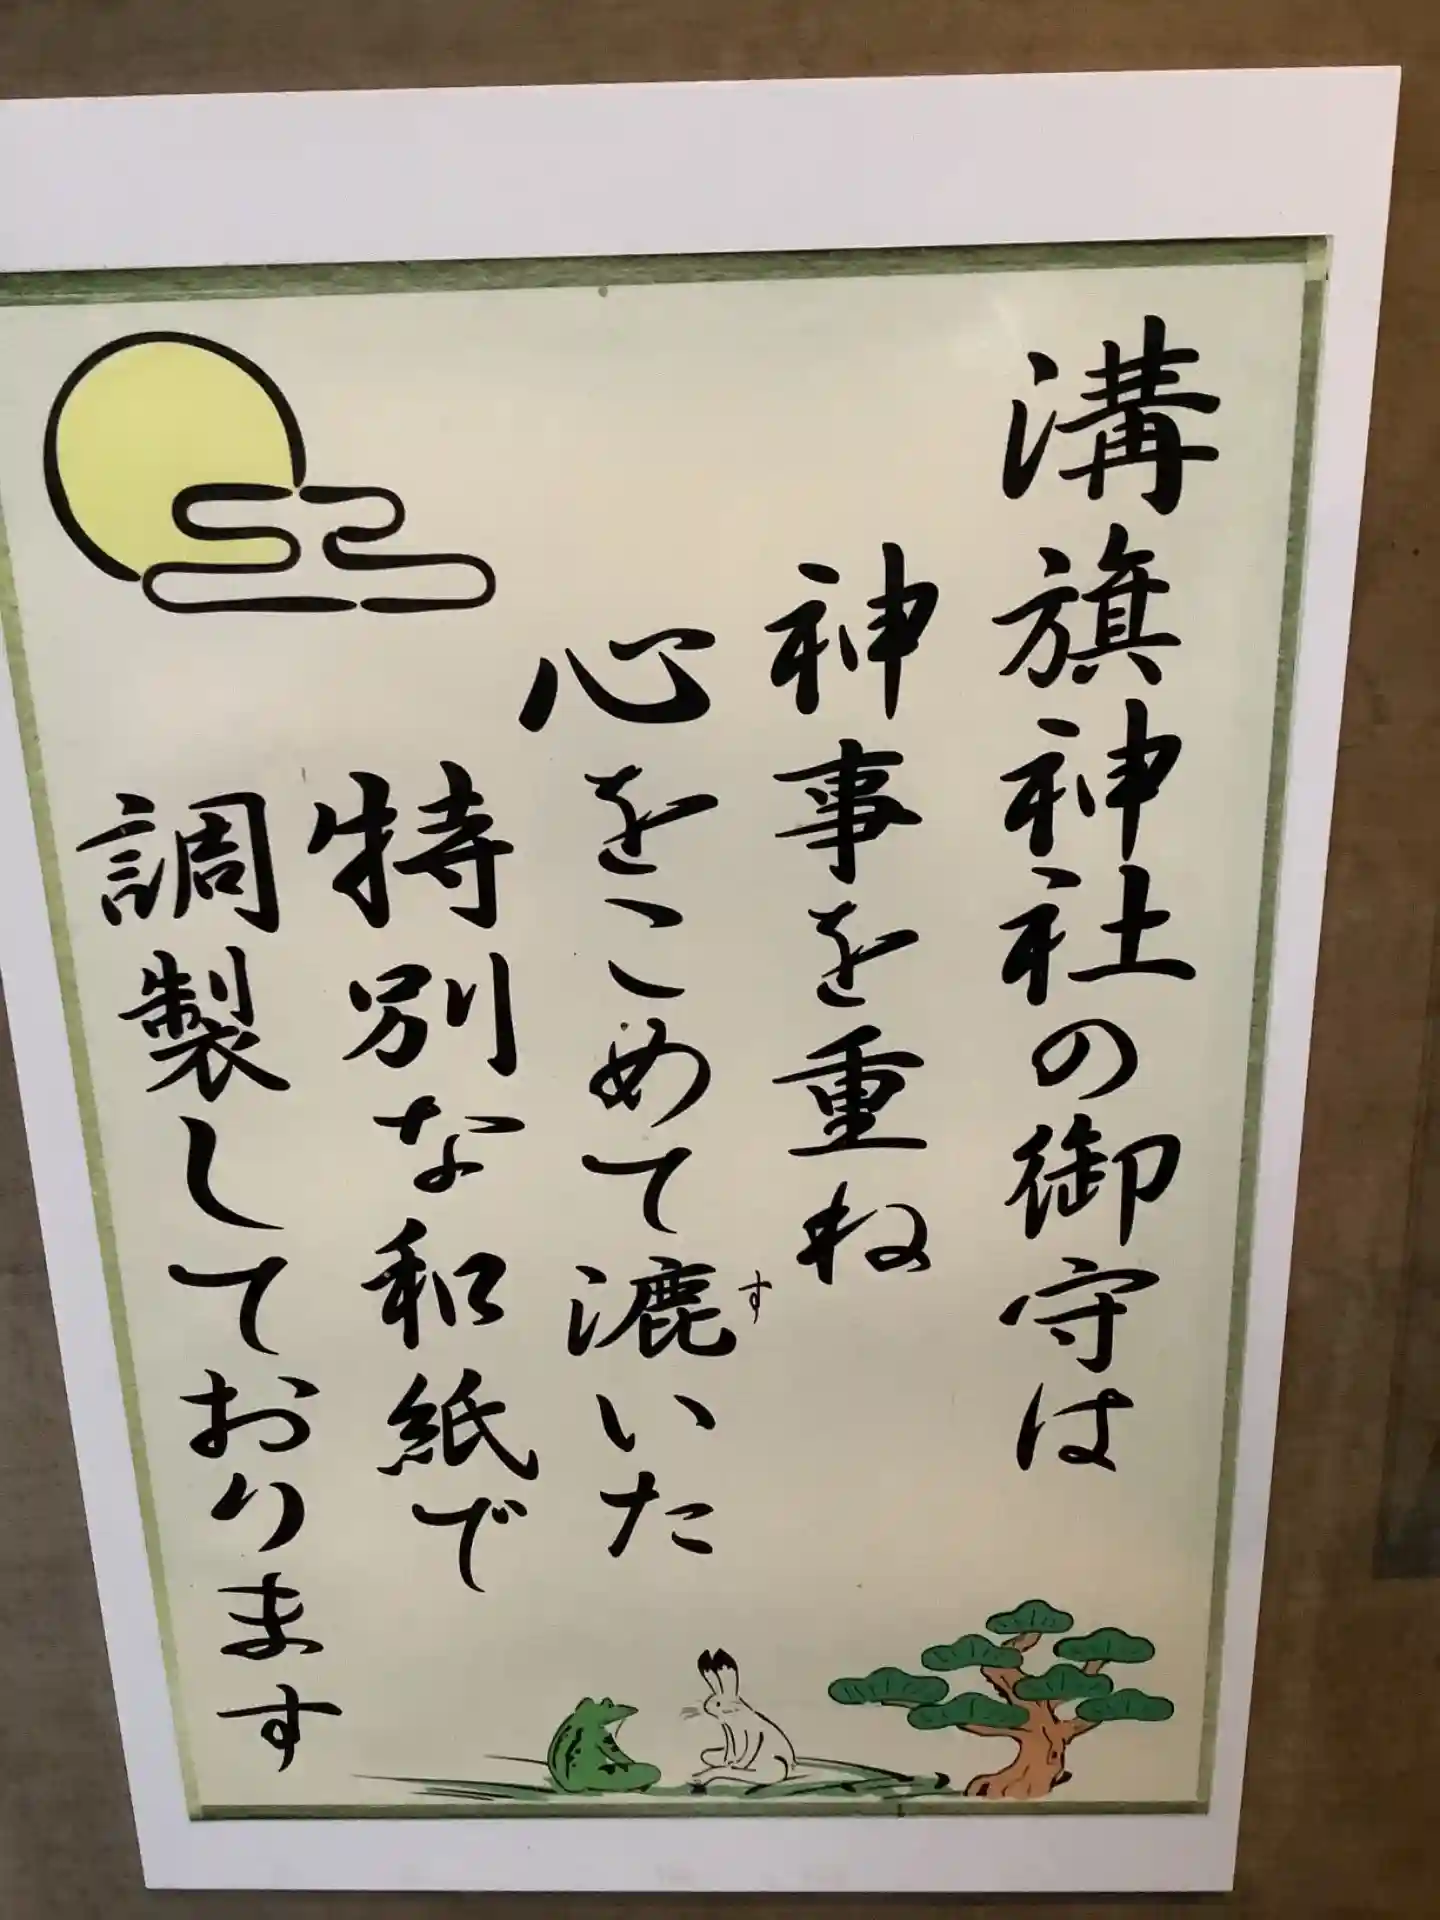 溝旗神社の御守は
神事を重ね
心をこめて漉いた
す
特別な和紙で
調製しております